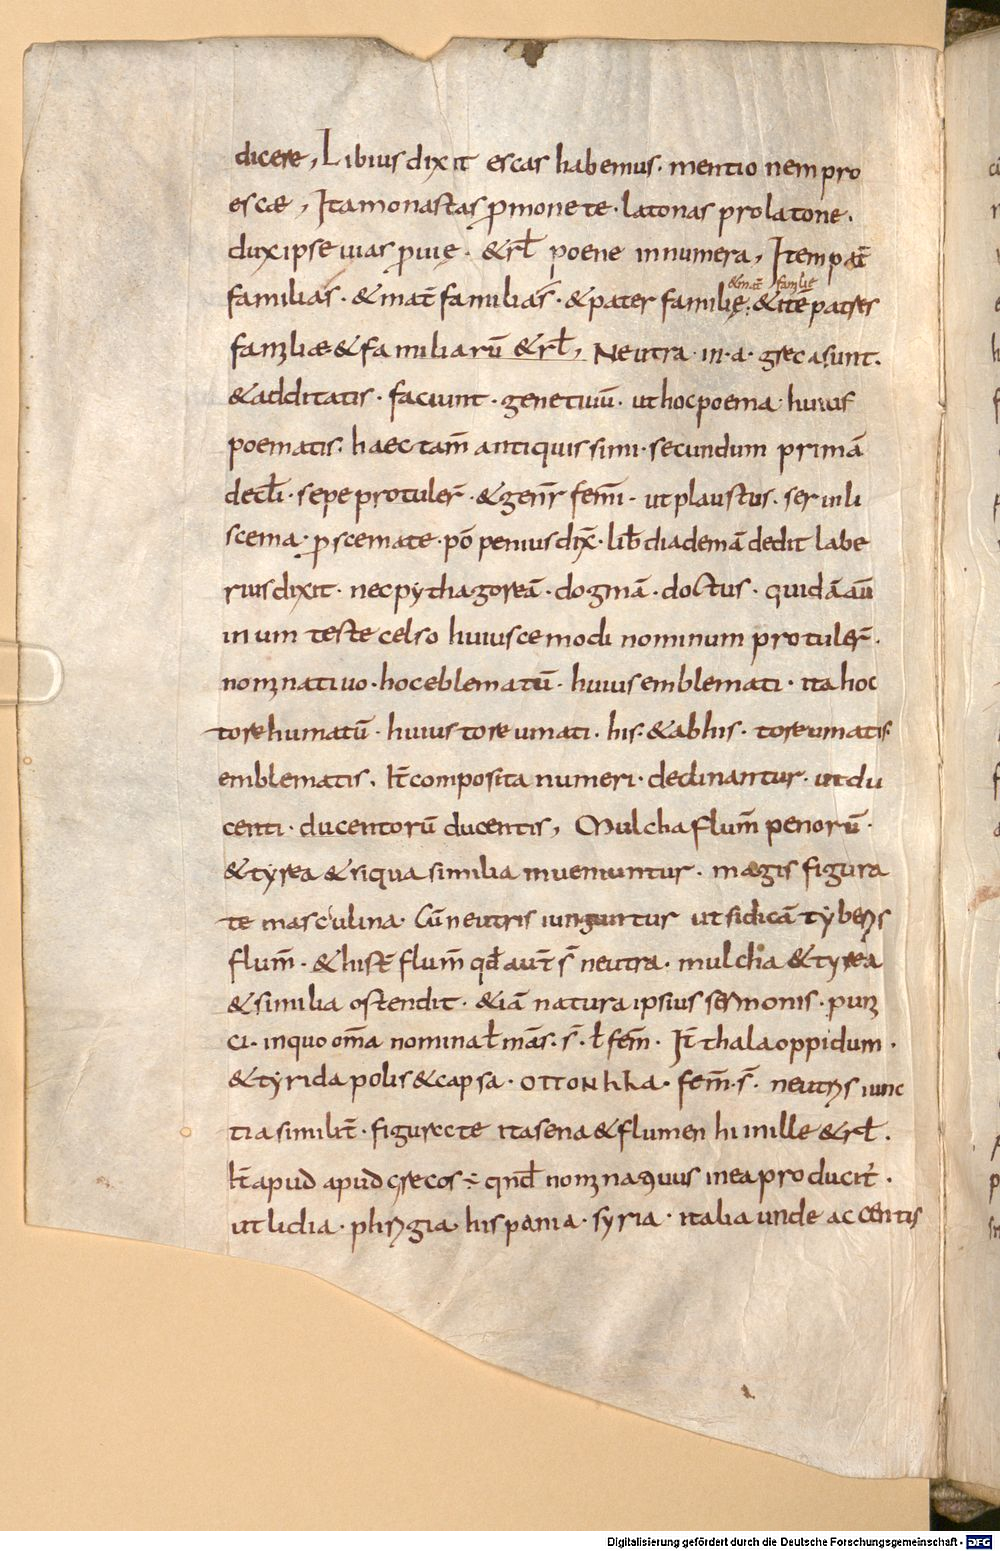 dicere, Libius dixit escas habemus· mentionem pro
escæ, Ita monastas p̄ monete· latonas pro latone·
dux ipse uias p̄ uię· &rł poene innumera, Item pat̄
&mat̄ familię
familias· &mat̄ familias· &pater familię; &ite patres
familiæ &familiarū &rł, Neutra· in· a· greca sunt·
&additatis· faciunt· genetiuū· ut hoc poema· huius
poematis· haec tam̄ antiquissimi· secundum primā
decł· sepe protuler̄· &gen̄r fem̄· ut plaustus· seruili
scema· p scemate· pō penius dix̄· lib̄ diademā dedit labe
rius dixit· nec pythagoreā· dogmā· doctus· quidā aū
in um teste celso huiuscemodi nominum protuler̄·
nominatiuo· hoc eblematū· huius emblemati· ita hoc
torehumatū· huius toreumati· his· &ab his· toreumatis·
emblematis· It̄ composita numeri· declinantur· ut du
centi· ducentorū ducentis, Mulcha flum̄ penorū·
&tyrea &siqua similia inueniuntur· magis figura
te masculina· Cū neutris iunguntur ut si dicā tyberis
flum̄· &hist̄ flum̄ qd̄ aut̄ s̄ neutra· mulcha &tyrea
&similia ostendit· &iā natura ipsius sermonis· puni
ci· in quo om̄a nominał mās· s̄· ł fem̄· It̄ thala oppidum·
&tyrida polis &capsa· fem̄· s̄· neutris iunc
tia similit̄· figurate ita sena &flumen himille &rł·
It̄ apud apud grecos ÷ qnd̄ nominatiuus in ea producit̄·
ut lidia· phrygia· hispania· syria· italia unde accentis
Digitalisierung gefördert durch die Deutsche Forschungsgemeinschaft - DFG